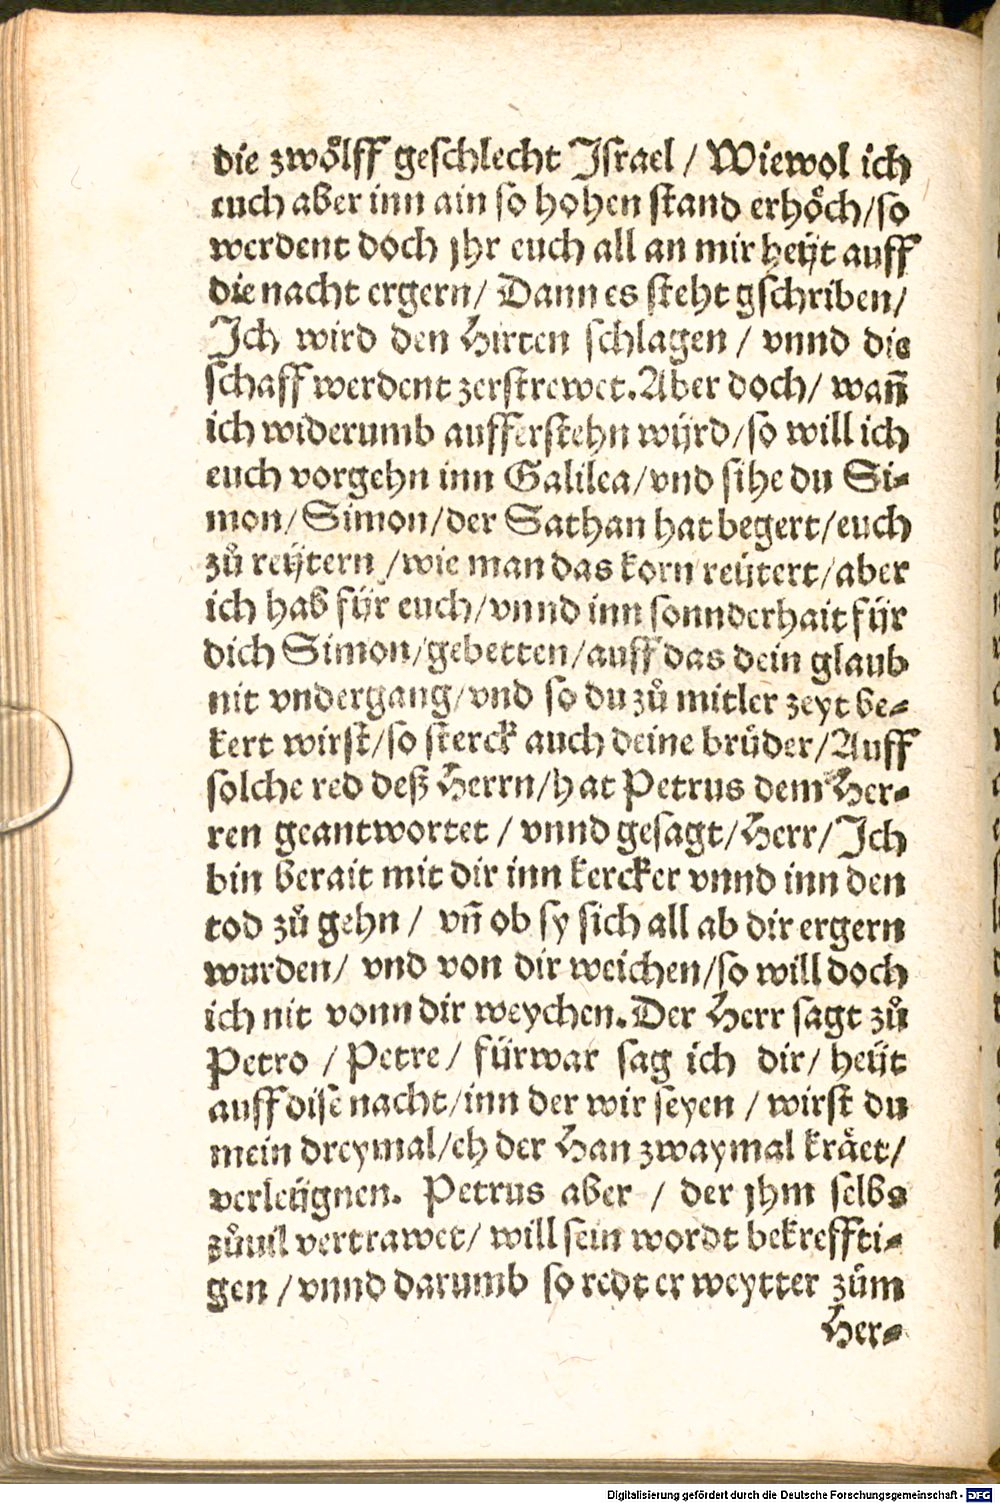 die zwölff geschlecht Israel / Wiewol ich
euch aber inn ain so hohen stand erhöch/so
werdent doch jhr euch all an mir heÿt auff
die nacht ergern/ Dann es steht gschriben/
Ich wird den Hirten schlagen / vnnd die
schaff werdent zerstrewet. Aber doch/ wañ
ich widerumb aufferstehn wÿrd/so will ich
euch vorgehn inn Galilea/vnd sihe du Si-
mon/Simon/der Sathan hat begert/euch
zů reÿtern /wie man das korn reütert/aber
ich hab fÿr euch/vnnd inn sonnderhait fÿr
dich Simon/gebetten/auff das dein glaub
nit vndergang/vnd so du zů mitler zeyt be-
kert wirst/so sterck auch deine brüder/Auff
solche red deß Herrn/hat Petrus dem Her-
ren geantwortet / vnnd gesagt/Herr/Ich
bin berait mit dir inn kercker vnnd inn den
tod zů gehn / vñ ob sy sich all ab dir ergern
wurden/ vnd von dir weichen/so will doch
ich nit vonn dir weychen. Der Herr sagt zů
Petro / Petre/ fürwar sag ich dir/ heÿt
auff dise nacht/inn der wir seyen / wirst du
mein dreymal/eh der Han zwaymal kräet/
verleÿgnen. Petrus aber / der jhm selbs
zůuil vertrawet/ will sein wordt bekreffti-
gen /vnnd darumb so redt er weytter zům
Her-
Digitalisierung gefördert durch die Deutsche Forschungsgemeinschaft - DFG